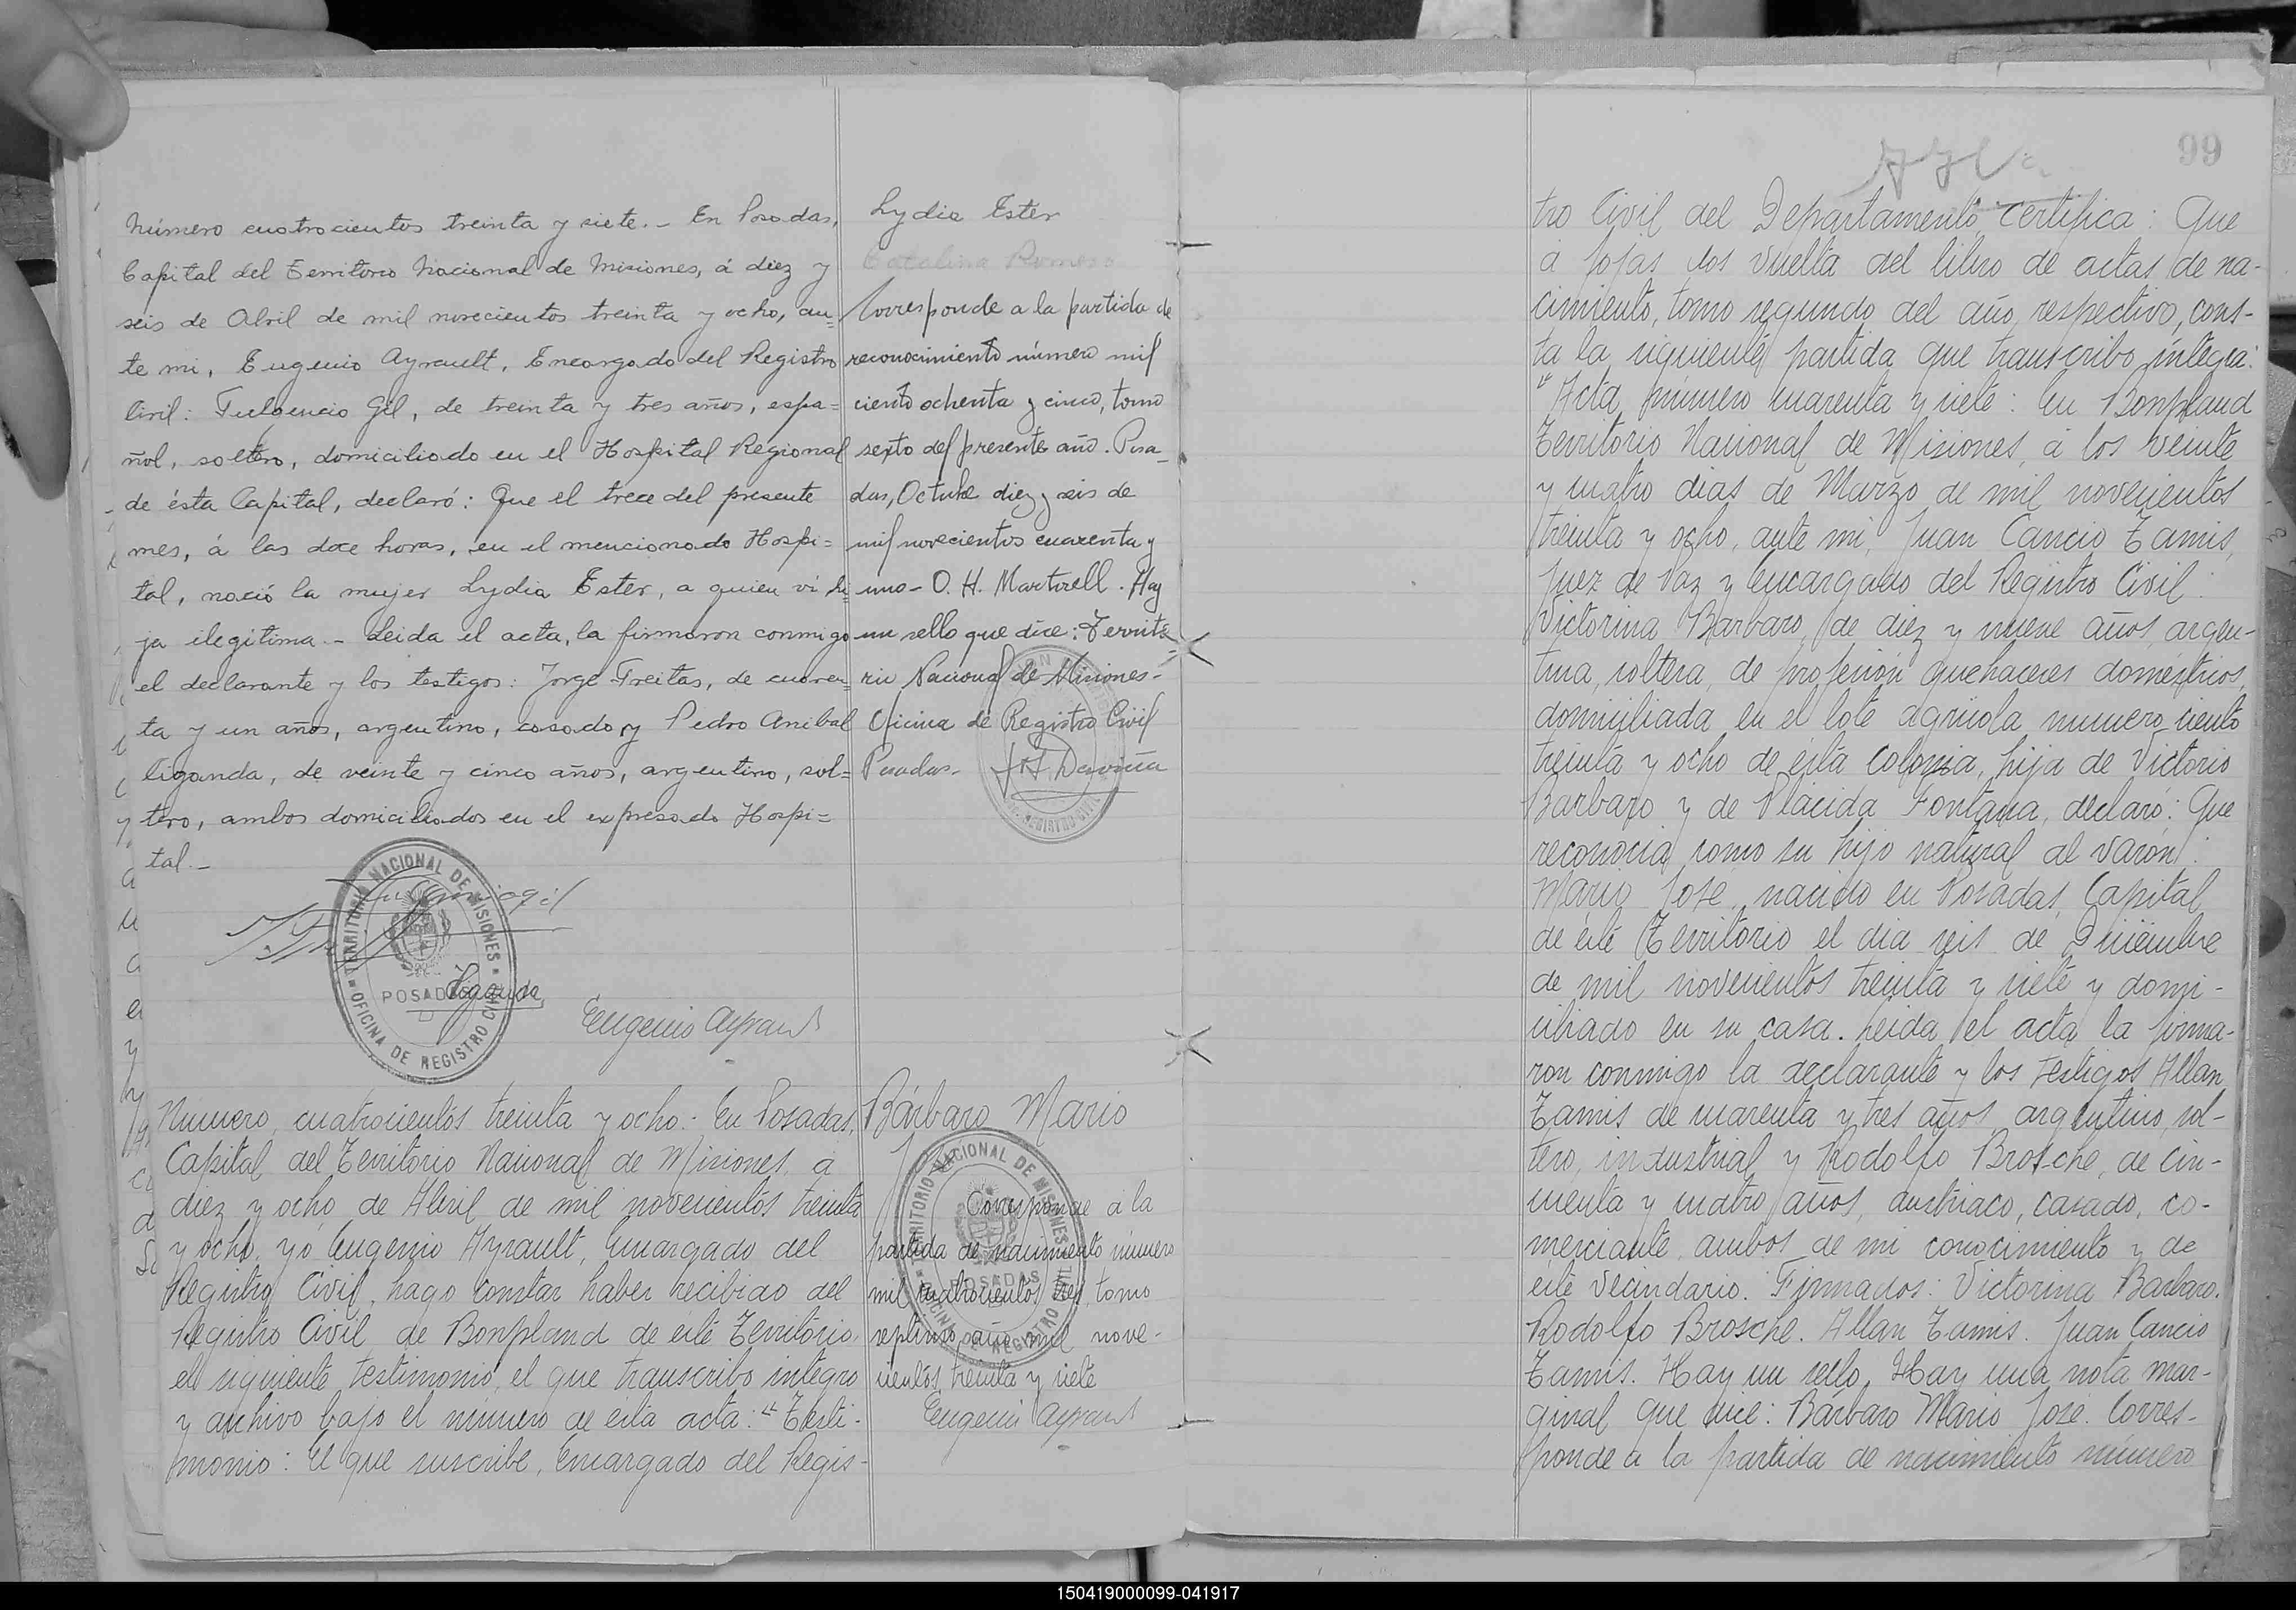 Número cuatrocientos treinta y siete.- En Posadas,
Capital del Territorio Nacional de Misiones, á diez y
seis de Abril de mil novecientos treinta y ocho, an=
te mi, Eugenio Ayrault, Encargado del Registro
Civil: Fulgencio Gil, de treinta y tres años, espa=
ñol, soltero, domiciliado en el Hospital Regional
de ésta Capital, declaró: Que el trece del presente
mes, á las doce horas, en el mencionado Hospi=
tal, nació la mujer Lydia Ester, a quien ví hi=
ja ilegítima.- Leida el acta, la firmaron conmigo
el declarante y los testigos: Jorge Freitas, de cuaren=
ta y un años, argentino, casado y Pedro Anibal
Ciganda, de veinte y cinco años, argentino, sol=
tero, ambos domiciliados en el expresado Hospi=
tal.-
Lydia Ester
Catalina Romero
Corresponde a la partida de
reconocimiento número mil
ciento ochenta y cinco, tomo
sexto del presente año. Posa-
das, Octubre diez y seis de
mil novecientos cuarenta y
uno- O. H. Martirell. Hay
un sello que dice: Territo
rio Nacional de Misiones-
Oficina de Registro Civil
Posadas-
TERRITORIO NACIONAL DE MISIONES
POSADAS
OFICINA DE REGISTRO CIVIL
Eugenio Ayrault
Número cuatrocientos treinta y ocho: En Posadas,
Capital del Territorio Nacional de Misiones, á
diez y ocho de Abril de mil novecientos treinta
y ocho, yo Eugenio Ayrault, Encargado del
Registro Civil, hago constar haber recibido del
Registro Civil de Bonpland de éste Territorio
el siguiente testimonio, el que transcribo integro
y archivo bajo el número de esta acta: "Testi-
monio: El que suscribe, Encargado del Regis-
Bárbaro Mario
J
Corresponde á la
partida de nacimiento número
mil cuatrocientos tres, tomo
septimo, año mil nove-
cientos treinta y siete
Eugenio Ayrault
TERRITORIO NACIONAL DE MISIONES
POSADAS
OFICINA DE REGISTRO CIVIL
99
tro Civil del Departamento, certifica: Que
á fojas dos vuelta del libro de actas de na-
cimiento, tomo segundo del año respectivo, cons-
ta la siguiente partida que transcribo íntegra:
"Acta número cuarenta y siete: En Bonpland
Territorio Nacional de Misiones, á los veinte
y cuatro dias de Marzo de mil novecientos
treinta y ocho, ante mi, Juan Cancio Tamis,
Juez de Paz y Encargado del Registro Civil:
Victorina Bárbaro, de diez y nueve años, argen-
tina, soltera, de profesión quehaceres domésticos,
domiciliada en el lote agricola numero ciento
treinta y ocho de ésta Colonia, hija de Victorio
Bárbaro y de Plácida Fontana, declaró: Que
reconocia como su hijo natural al varón:
Mario José, nacido en Posadas, Capital
de éste Territorio el dia seis de Diciembre
de mil novecientos treinta y siete y domi-
ciliado en su casa. Leida el acta, la firma-
ron conmigo la declarante y los testigos Allan
Tamis de cuarenta y tres años, argentino, sol-
tero, industrial y Rodolfo Brosche, de cin-
cuenta y cuatro años, austriaco, casado, co-
merciante, ambos de mi conocimiento y de
éste vecindario. Firmados: Victorina Bárbaro.
Rodolfo Brosche. Allan Tamis. Juan Cancio
Tamis. Hay un sello. Hay una nota mar-
ginal que dice: Bárbaro Mario José. Corres-
ponde a la partida de nacimiento número
150419000099-041917